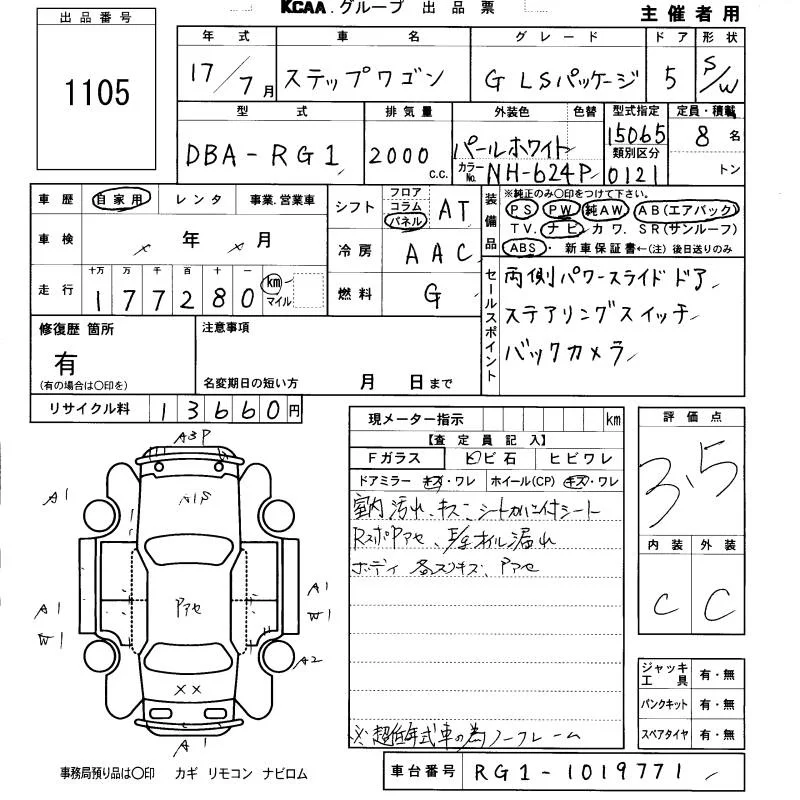 KCAA.グループ 出品票
主催者用
出品番号
1105
年式 車名 グレード ドア 形状
17/7月 ステップワゴン G LSパッケージ 5 S/W
型式 排気量 外装色 色替 型式指定 定員・積載
DBA-RG1 2000 c.c. パールホワイト 15065 8名
カラーNo. NH-624P 類別区分 0121 トン
車歴 自家用 レンタ 事業.営業車
シフト フロア コラム パネル AT
装備品 ※純正のみ〇印をつけて下さい。
PS PW 純AW AB(エアバック)
TV. ナビ カワ. SR(サンルーフ)
ABS・新車保証書←(注) 後日送りのみ
車検 年 月
冷房 AAC
走行 十万 万 千 百 十 一
177280 km マイル
燃料 G
セールスポイント
両側パワースライドドア
ステアリングスイッチ
バックカメラ
修復歴 箇所
有
(有の場合は〇印を)
注意事項
名変期日の短い方 月 日まで
リサイクル料 13660円
現メーター指示 km
【査定員記入】
Fガラス ヒビ石 ヒビワレ
ドアミラー キズ・ワレ ホイール(CP) キズ・ワレ
室内汚れ、キズ、シート
ボディ 各スリキズ、アセ
※超低年式車の為ノークレーム
評価点
3.5
内装 外装
C C
ジャッキ工具 有・無
パンクキット 有・無
スペアタイヤ 有・無
A3P
A1
A1S
A1
W1
アセ
A1
W1
A2
XX
A1
事務局預り品は〇印 カギ リモコン ナビロム
車台番号 RG1-1019771